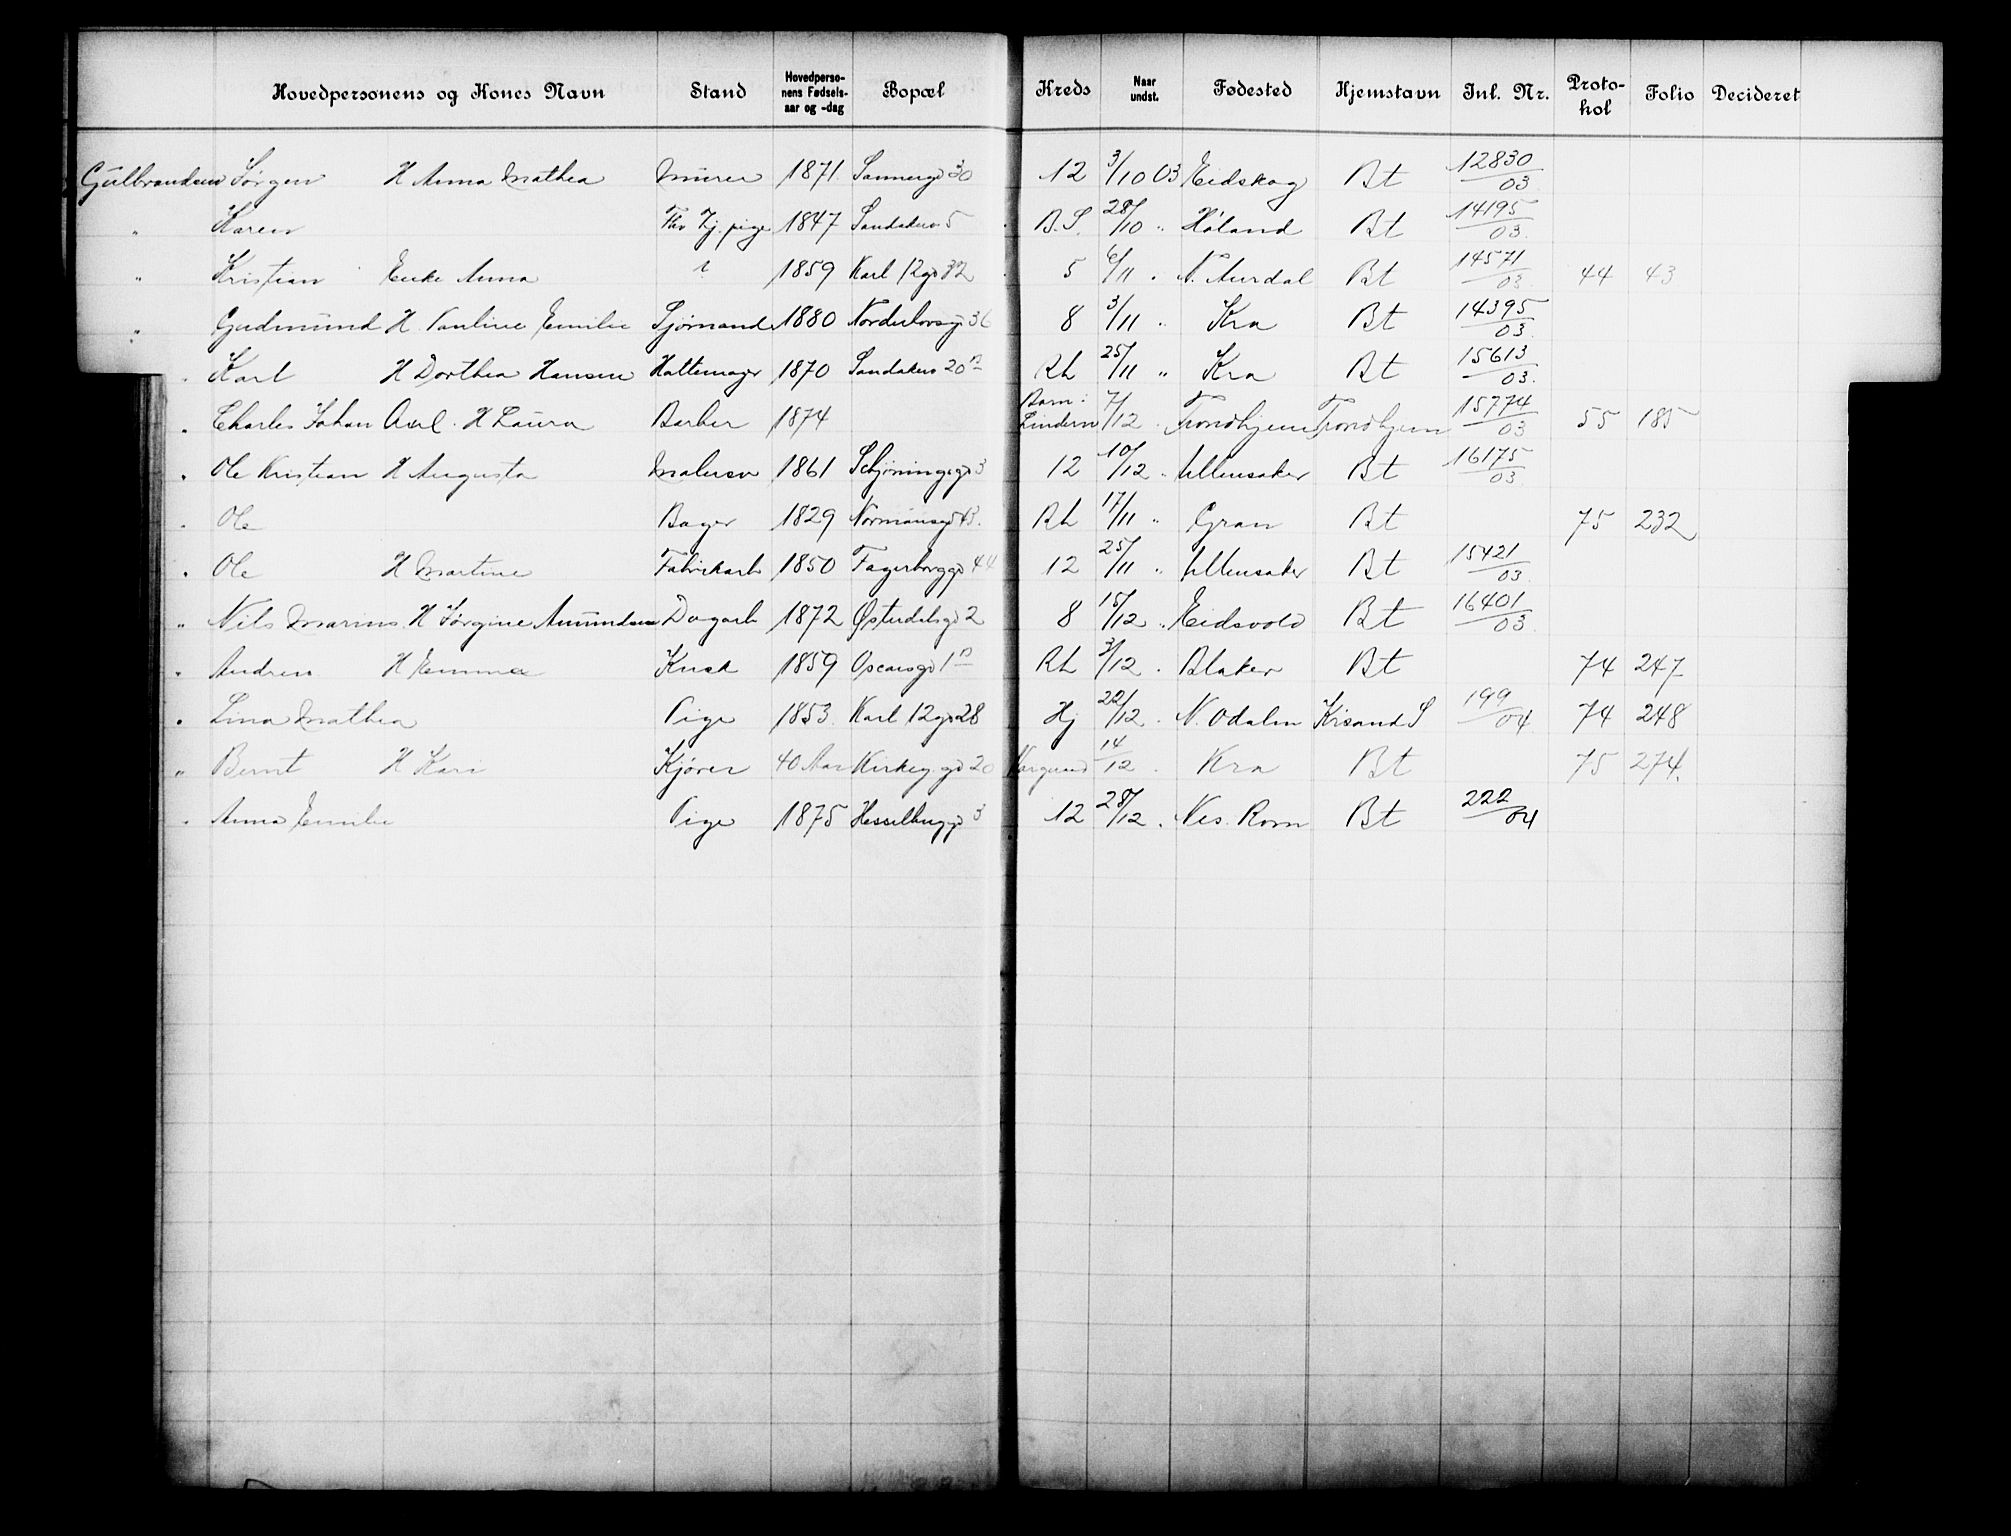 Hovedpersonens og Kones Navn Stand Hovedperso-nens Fødsels-aar og -dag Bopæl Kreds Naar undst. Fødested Hjemstavn Inl. Nr. Proto-kol Folio Decideret
Gulbrandsen Jørgen H Anna Mathea Murer 1871. Sannergd 30 12 3/10 03 Eidskog Bt 12830/03.
" Karen Fhv Tj. pige 1847 Sandakerv 5 B.S. 28/10 " Høland Bt 14195/03.
" Kristian Enke Anna 1859 Karl 12 gd 32 5 6/11 " N. Aurdal Bt 14571/03. 44 43
" Gudmund H. Pauline Emilie Sjømand 1880 36 8 3/11 " Kra Bt 14395/03.
" Karl H Dorthea Hansen Hattemager 1870 Sandakerv 20 B Rh 25/11 " Kra Bt 15613/03.
" Charles Johan Axel. H Laura Barber 1874 Barn i Lindern 7/12 " Trondhjem Trondhjem 15774/03 55 185
" Ole Kristian H Augusta Malersv 1861 Schjøningsgd 3 12 10/12 " Ullensaker Bt 16175/03.
" Ole Bager 1829 Normansgd 43. Rh 17/11 " Gran Bt 75 232
" Ole H Martine Fabrikarb 1850 Fagerborggd 44 12 25/11 " Ullensaker Bt 15421/03.
" Nils Marius. H Jørgine Amundsen Dagarb 1872 Østerdalsgd 2 8 15/12 " Eidsvold Bt 16401/03.
" Andreas H Emma Kusk 1859 Oscarsgd 1 B Rh 3/12 " Blaker Bt 74 247
" Lina Mathea Pige 1853. Karl 12 gd 28 Hj 22/12 " N. Odalen Krsand S 199/04. 74 248
" Bernt H Kari Kjører 40 Aar Kirkeg. gd 20 14/12 " Kra Bt 75 274.
" Anna Emilie Pige 1875 Hesselbggd 3 12 28/12 " Nes. Rom Bt 222/04